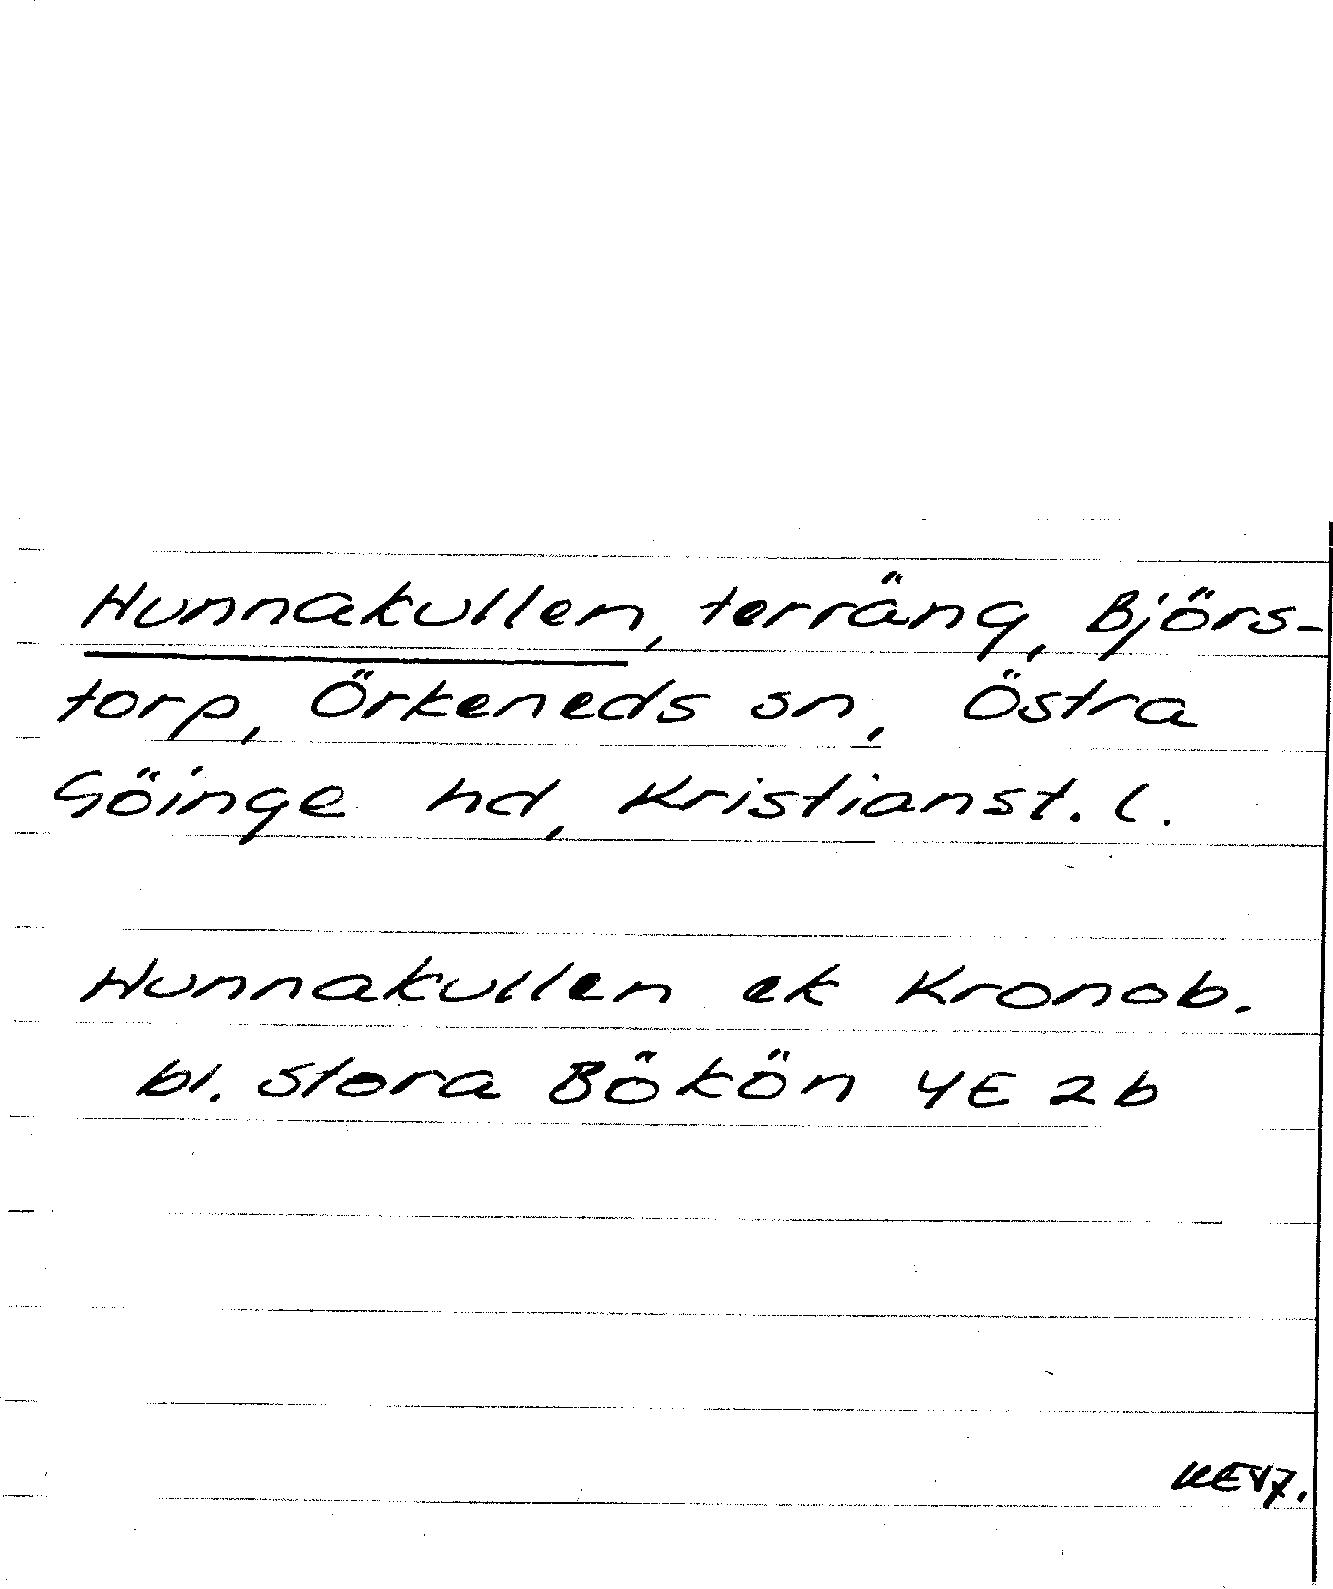 Hunnakullen, terräng, Björs-
torp, Örkeneds sn, Östra
Göinge hd, Kristianst. l.
Hunnakullen ek Kronob.
bl. Stora Bökön 4E 2b